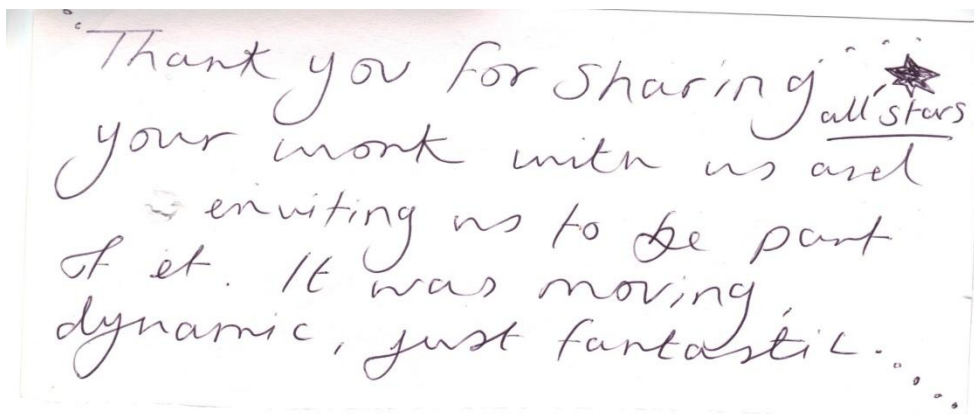 Thank you for sharing
all stars
your work with us and
enviting us to be part
of it. It was moving,
dynamic, just fantastic.....